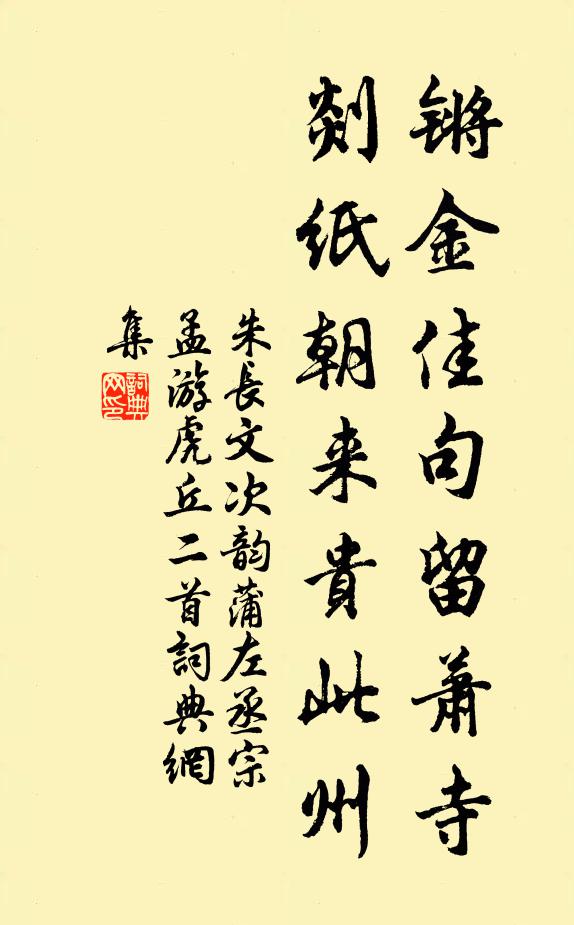 锵金佳句留蕭寺
剡纸朝来貴此州
朱長文次韵蒲左丞宗
孟游虎丘二首詞典網
集
詞典
网印